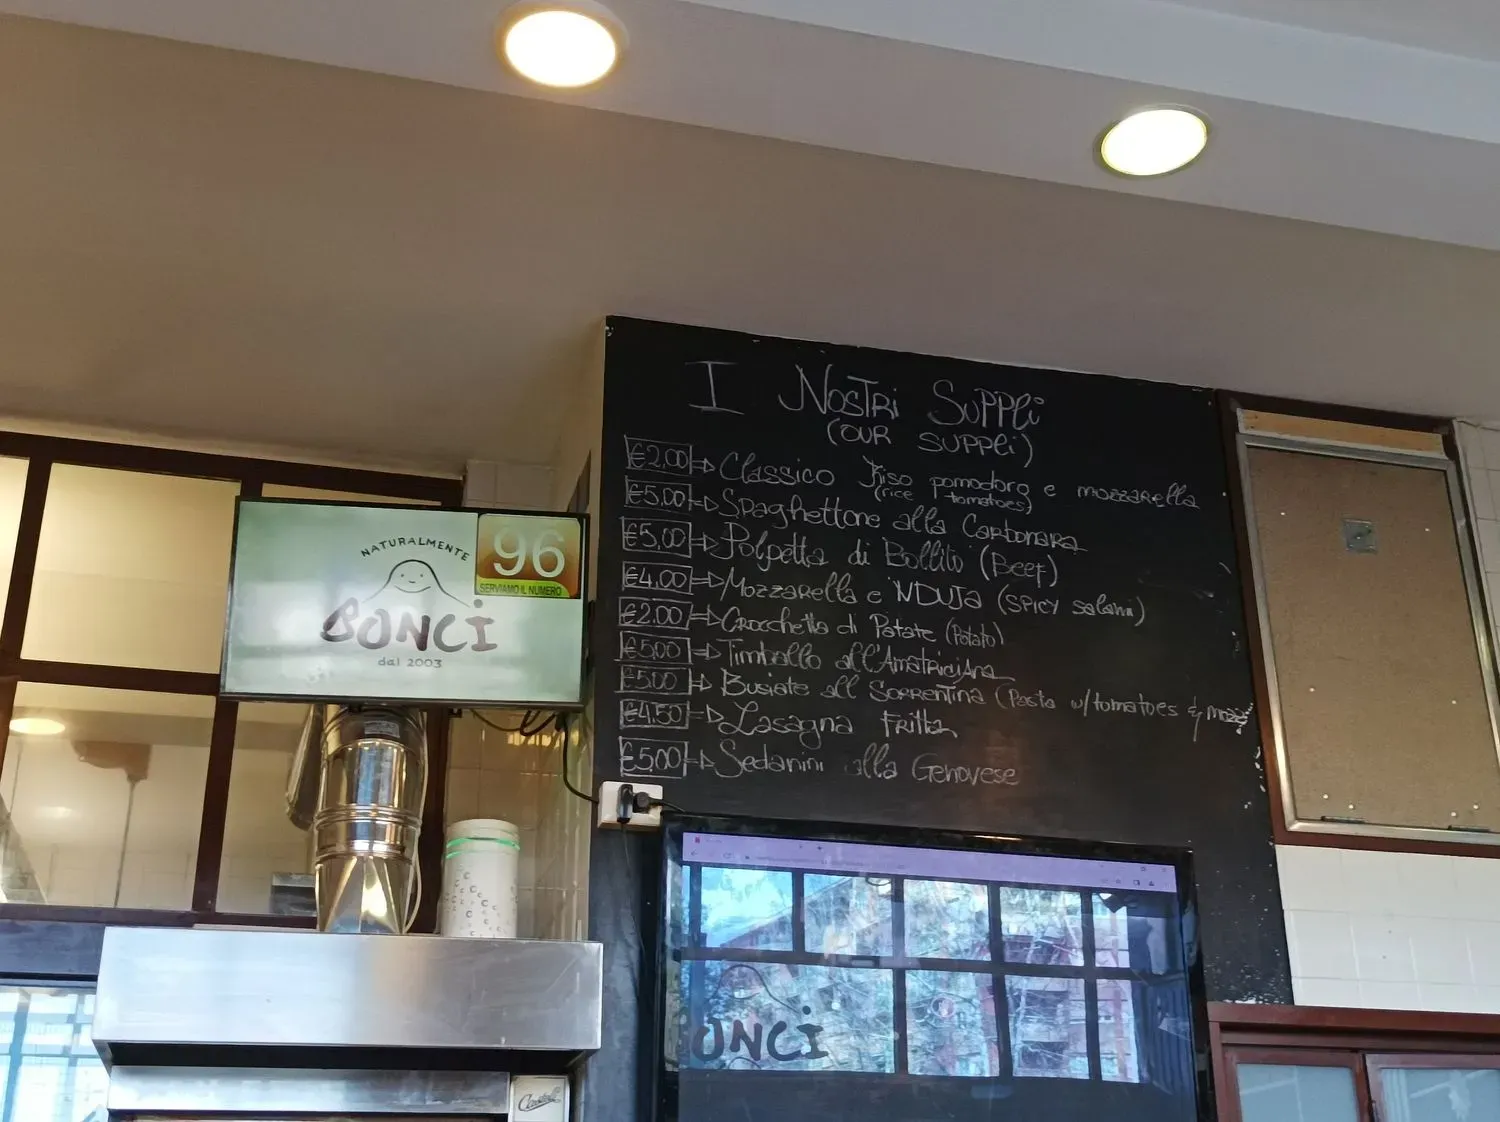 I NOSTRI SUPPLì
(OUR SUPPLì)
€2,00 => Classico Riso pomodoro e mozzarella
(rice tomatoes)
€5,00 => Spaghettone alla Carbonara
€5,00 => Polpetta di Bollito (Beef)
€4,00 => Mozzarella e NDUJA (SPICY Salami)
€2,00 => Crocchetta di Patate (Potato)
€5,00 => Timballo all'Amatriciana
€5,00 => Busiate all SORRENTINA (Pasta w/tomatoes & mozz
€4,50 => Lasagna Fritta
€5,00 => Sedanini alla Genovese
NATURALMENTE
BONCI
dal 2003
96
SERVIAMO IL NUMERO
ONCI